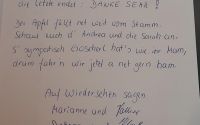 die letzte endet: DANKE SEHR!
Der Apfel fällt net weit vom Stamm.
Schaut euch d' Andrea und die Sarah an.
S' sympatisch hat's wie ihr Mam,
drum fahr'n wir jetzt a net gern ham.
Auf Wiedersehen sagen
Marianne und